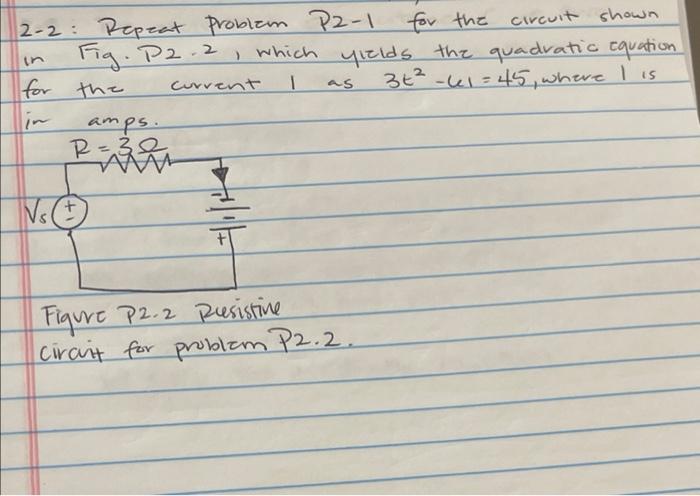 2-2: Repeat Problem P2-1 for the circuit shown
in Fig. P2.2, which yields the quadratic equation
for the current I as 3t² -61 = 45, where I is
in amps.
R = 3Ω
Vs
+
-
-
-
+
Figure P2.2 Resistive
circuit for problem P2.2.